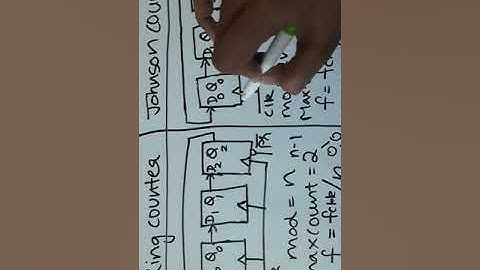 counter
Q0
D1 Q1
D2 Q2
PR
mod = n
max count = 2^n-1
f = fclk/n
Johnson cou
D0 Q0
D1
CLK
mo
Max
f = fc